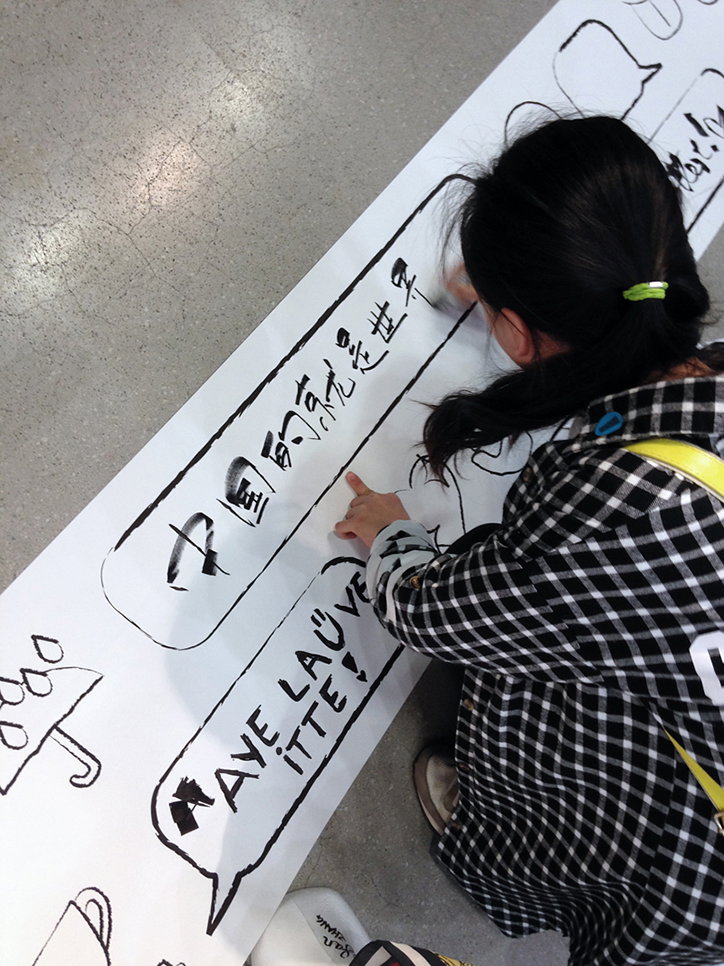 中国的就是世界
AYE LAÜVE
iTTE!
ZHANG